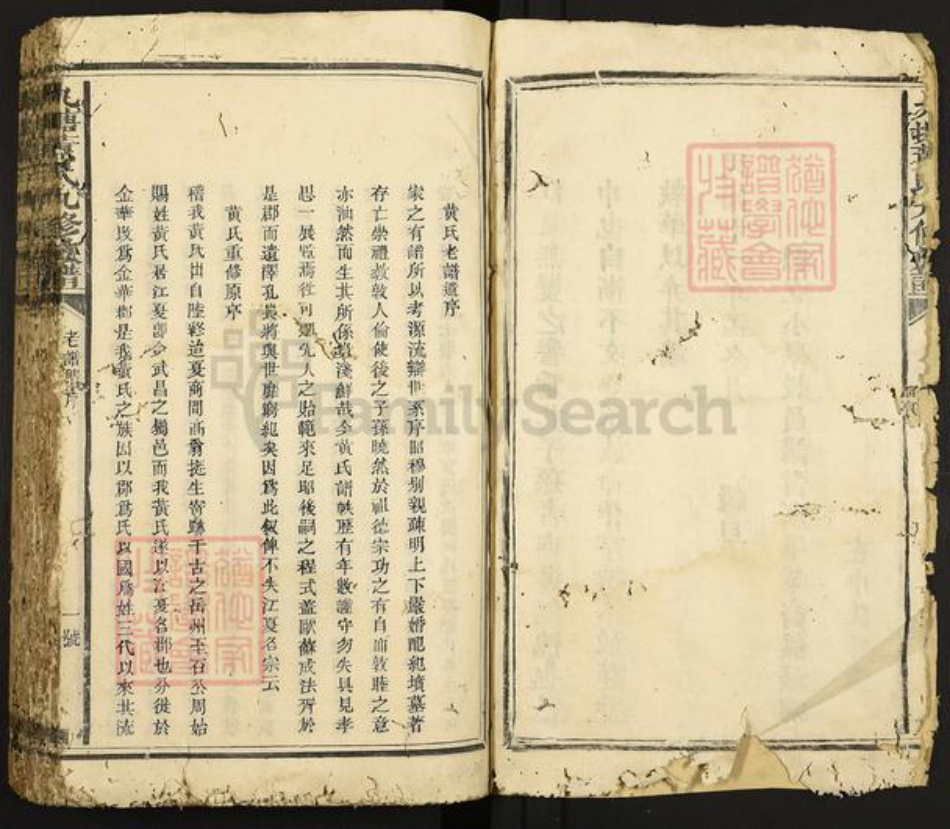 黃氏老譜遺序
家之有譜所以考源流辯世系序昭穆别親疎明上下嚴婚配紀墳墓著
存亡崇禮教敦人倫使後之子孫曉然於祖德宗功之有自而敦睦之意
亦油然而生其所係謂淺鮮哉今黃氏譜帙歷有年數謹守勿失具見孝
思一展覧焉徃可觀先人之貽範來足昭後嗣之程式蓋歐蘇成法異於
是郡而遺澤孔長將與世靡窮紀矣因爲此叙俾不失江夏名宗云
黃氏重修原序
稽我黃氏出自陸終迨夏商間
賜姓黃氏居江夏卽今武昌之
邑而我黃氏遂以江夏名郡也分徙於
金華以爲金華郡是我黃氏之族因以郡爲氏以國爲姓三代以來其流
老譜
一號
猶他家譜學會特藏
猶他家譜學會特藏
FamilySearch